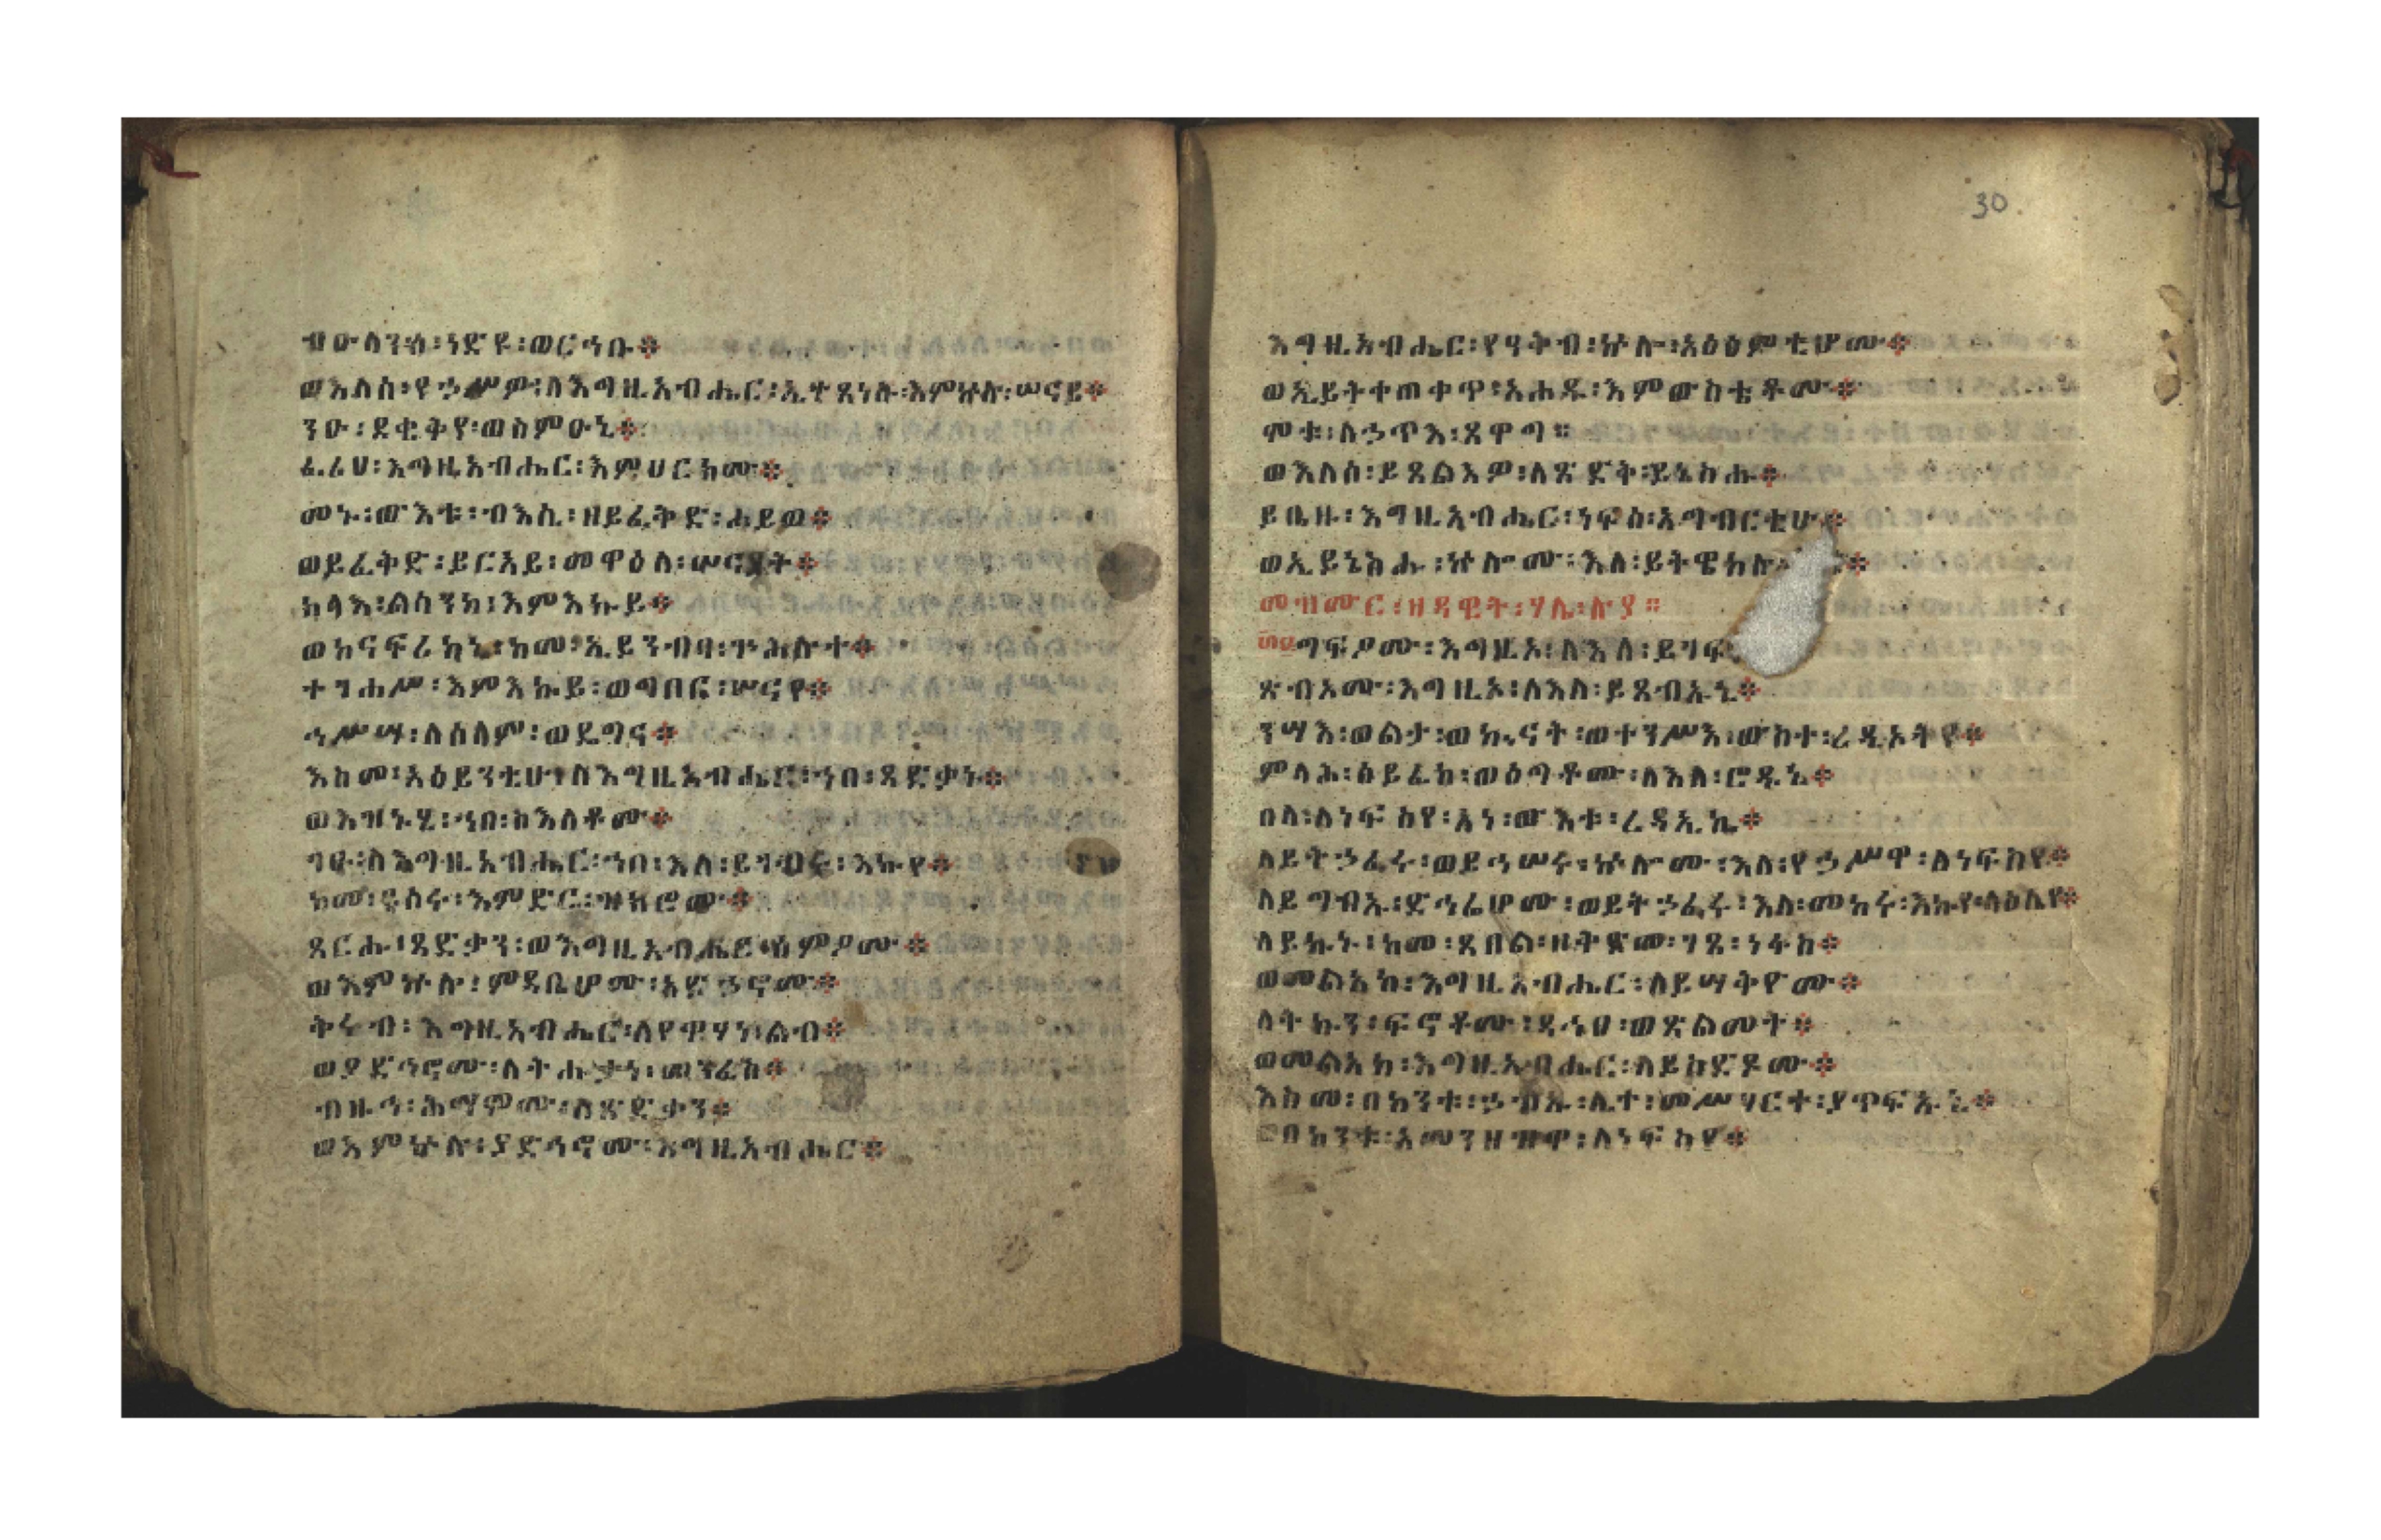 ብዑላንሰ፡ነድዩ፡ወርኅቡ።
ወእለሰ፡የኃሥሥዎ፡ለእግዚአብሔር፡ኢተጸነሱ፡እምኵሉ፡ሠናይ።
ንዑ፡ደቂቅየ፡ወስምዑኒ።
ፈሪሀ፡እግዚአብሔር፡እምህርክሙ።
መኑ፡ውእቱ፡ብእሲ፡ዘይፈቅድ፡ሐይወ።
ወይፈቅድ፡ይርአይ፡መዋዕለ፡ሠናያት።
ከላእ፡ልሳንከ፡እምእኩይ።
ወከናፍሪከኒ፡ከመ፡ኢይንብባ፡ጕሕሉተ።
ተግሕሥ፡እምእኩይ፡ወግበር፡ሠናየ።
ኅሥሣ፡ለሰላም፡ወዴግና።
እስመ፡አዕይንቲሁ፡ለእግዚአብሔር፡ኀበ፡ጻድቃኑ።
ወእዝኑሂ፡ኀበ፡ስእለቶሙ።
ገጹ፡ለእግዚአብሔር፡ኀበ፡እለ፡ይገብሩ፡እኩየ።
ከመ፡ይሰሩ፡እምድር፡ዝክሮሙ።
ጸርሑ፡ጻድቃን፡ወእግዚአብሔር፡ሰምዖሙ።
ወእምኵሉ፡ምዳቤሆሙ፡አድኃኖሙ።
ቅሩብ፡እግዚአብሔር፡ለየዋሃነ፡ልብ።
ወያድኅኖሙ፡ለትሑታነ፡መንፈስ።
ብዙኅ፡ሕማምሙ፡ለጻድቃን።
ወእምኵሉ፡ያድኅኖሙ፡እግዚአብሔር።
30
እግዚአብሔር፡የዓቅብ፡ኵሉ፡አዕፅምቲሆሙ።
ወኢይትቀጠቀጥ፡አሐዱ፡እምውስቴቶሙ።
ሞቱ፡ለኃጥእ፡ጸዋግ።
ወእለሰ፡ይጸልእዎ፡ለጻድቅ፡ይኔስሑ።
ይቤዙ፡እግዚአብሔር፡ነፍሰ፡አግብርቲሁ።
ወኢይኔስሑ፡ኵሎሙ፡እለ፡ይትዌከሉ
መዝሙር፡ዘዳዊት፡ሃሌ፡ሉያ።
ግፍዖሙ፡እግዚኦ፡ለእለ፡ይገፍ
ጽብኦሙ፡እግዚኦ፡ለእለ፡ይጸብኡኒ።
ንሣእ፡ወልታ፡ወኲናት፡ወተንሥእ፡ውስተ፡ረዲኦትየ።
ምላሕ፡ሰይፈከ፡ወዕግቶሙ፡ለእለ፡ሮዱኒ።
በላ፡ለነፍስየ፡አነ፡ውእቱ፡ረዳኢኪ።
ለይትኃፈሩ፡ወይኅሠሩ፡ኵሎሙ፡እለ፡የኃሥዋ፡ለነፍስየ።
ለይግብኡ፡ድኅሬሆሙ፡ወይትኃፈሩ፡እለ፡መከሩ፡እኩየ፡ላዕሌየ።
ለይኩኑ፡ከመ፡ጸበል፡ዘቅድመ፡ገጸ፡ነፋስ።
ወመልአከ፡እግዚአብሔር፡ለይሣቅዮሙ።
ለትኩን፡ፍኖቶሙ፡ዳኅፀ፡ወጽልመት።
ወመልአከ፡እግዚአብሔር፡ለይስድዶሙ።
እስመ፡በከንቱ፡ኃብኡ፡ሊተ፡መሥገርተ፡ያጥፍኡኒ።
በከንቱ፡አመንዘዝዋ፡ለነፍስየ።